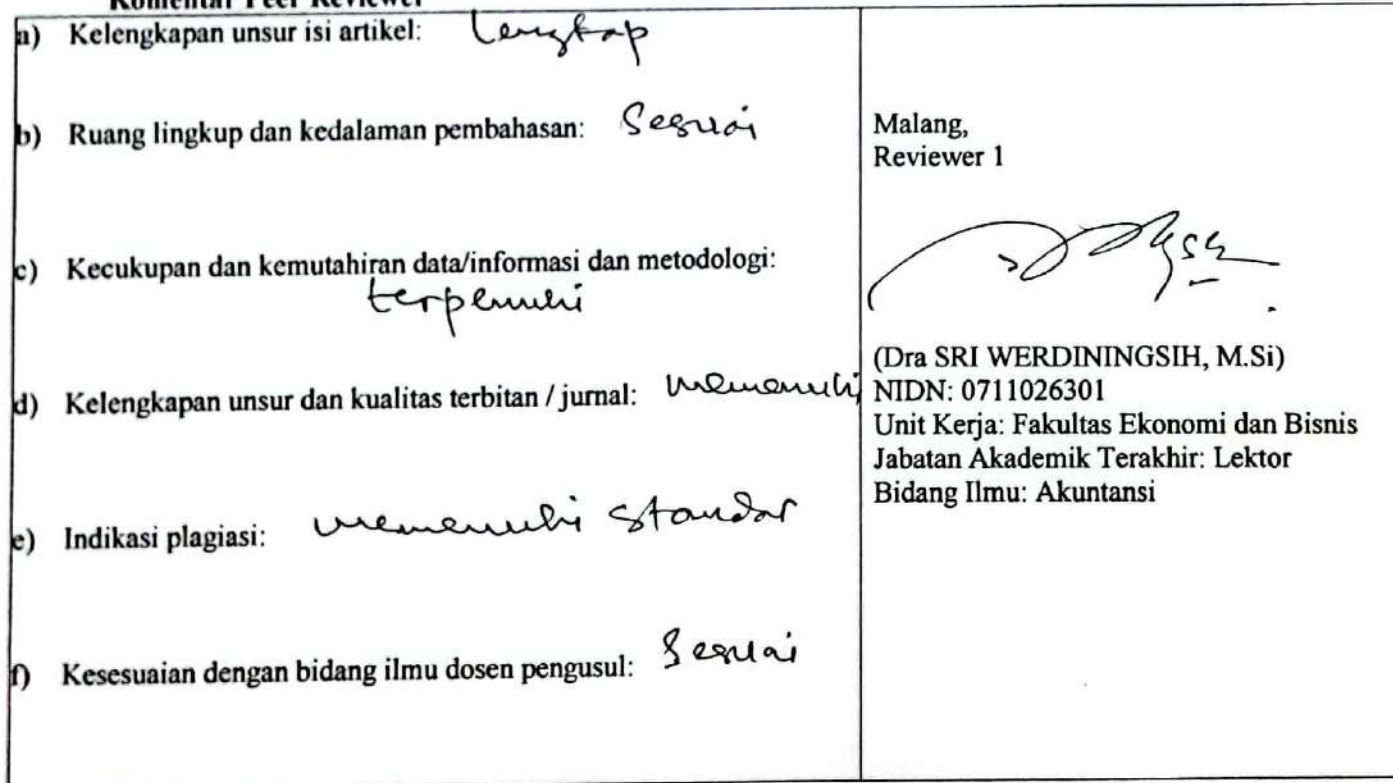 Komentar Peer Reviewer
a) Kelengkapan unsur isi artikel: Lengkap
b) Ruang lingkup dan kedalaman pembahasan: Sesuai
c) Kecukupan dan kemutahiran data/informasi dan metodologi:
terpenuhi
d) Kelengkapan unsur dan kualitas terbitan / jurnal: memenuhi
e) Indikasi plagiasi: memenuhi standar
f) Kesesuaian dengan bidang ilmu dosen pengusul: Sesuai
Malang,
Reviewer 1
(Dra SRI WERDININGSIH, M.Si)
NIDN: 0711026301
Unit Kerja: Fakultas Ekonomi dan Bisnis
Jabatan Akademik Terakhir: Lektor
Bidang Ilmu: Akuntansi